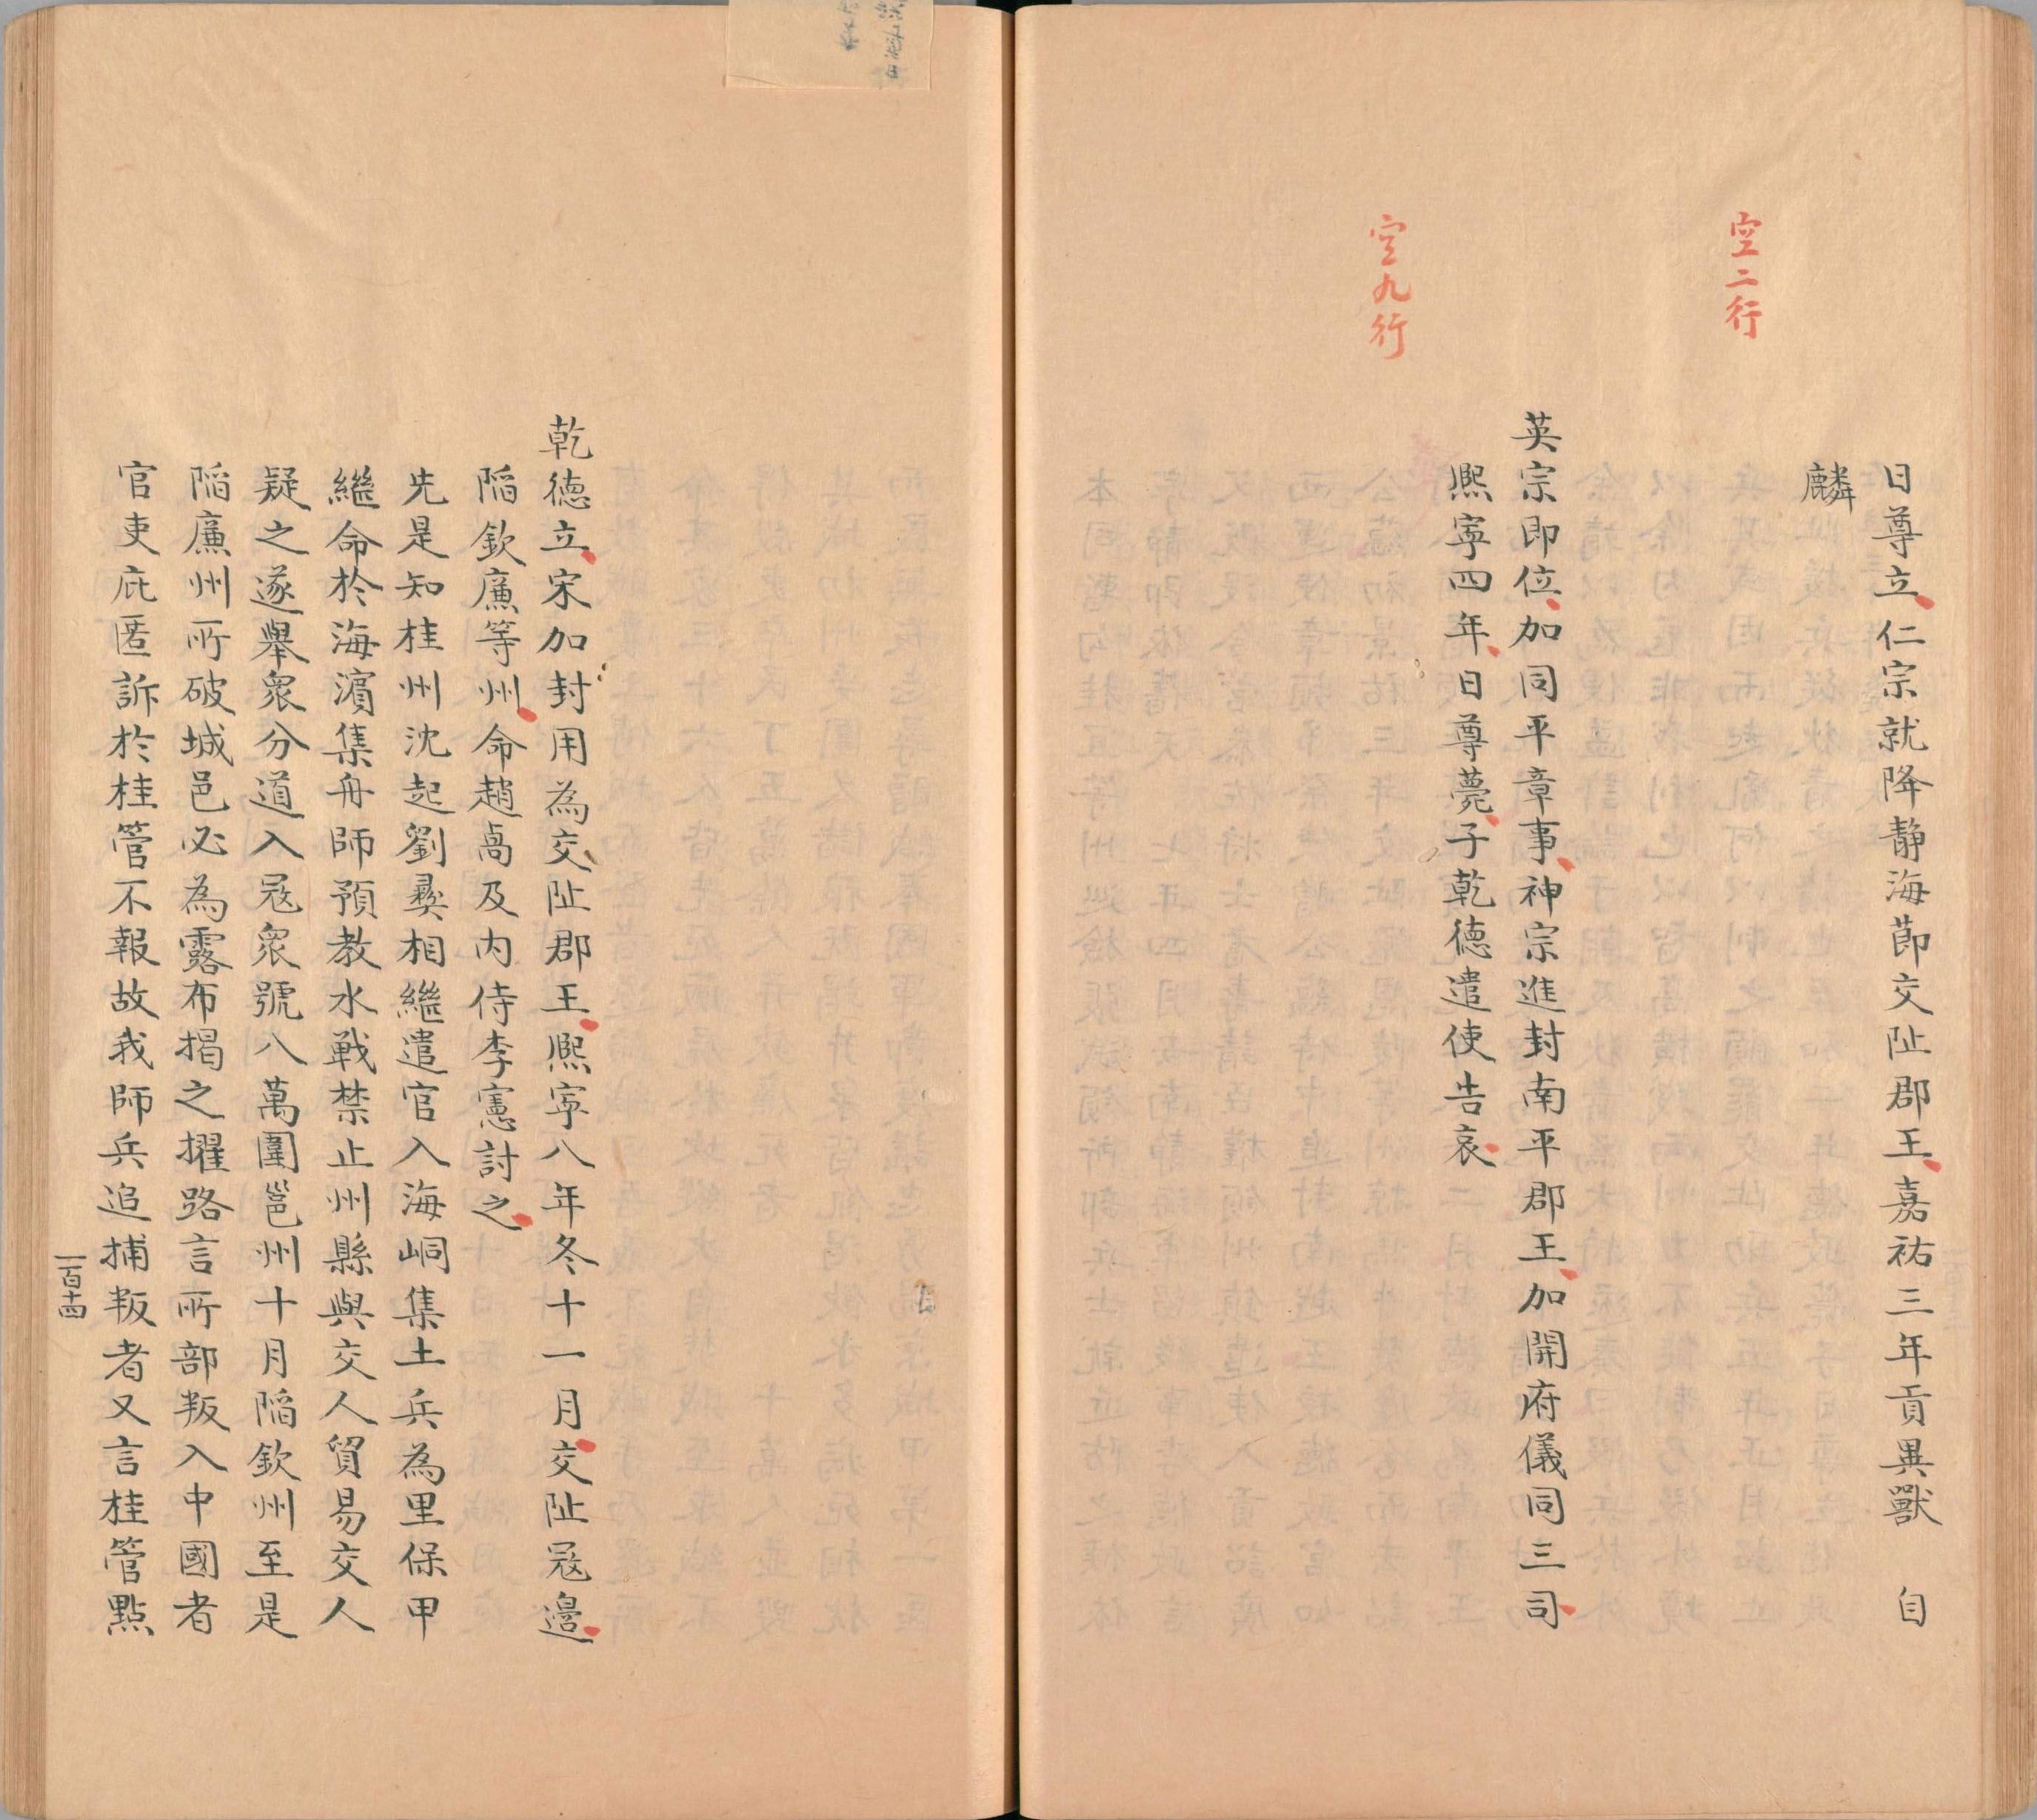 日尊立仁宗就降静海節交阯郡王嘉祐三年貢異獸 自
麟
空二行
英宗即位加同平章事神宗進封南平郡王加開府儀同三司
熈寜四年日尊薨子乾德遣使告哀
空九行
乾德立宋加封用為交阯郡王熈寜八年冬十一月交阯冦邉
䧟欽廉等州命趙卨及内侍李憲討之
先是知桂州沈起劉彞相繼遣官入海峒集土兵為里保甲
繼命於海濵集舟師預教水戰禁止州縣與交人貿易交人
疑之遂舉衆分道入冦衆號八萬圍邕州十月䧟欽州至是
䧟廉州所破城邑必為露布揭之擢路言所部叛入中國者
官吏庇匿訴於桂管不報故我師兵追捕叛者又言桂管點
一百十四